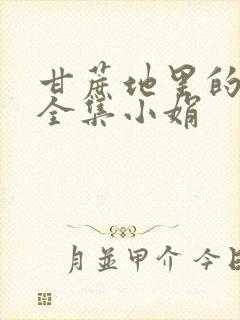 甘蔗地里的
全集小娟
月並甲介 今日